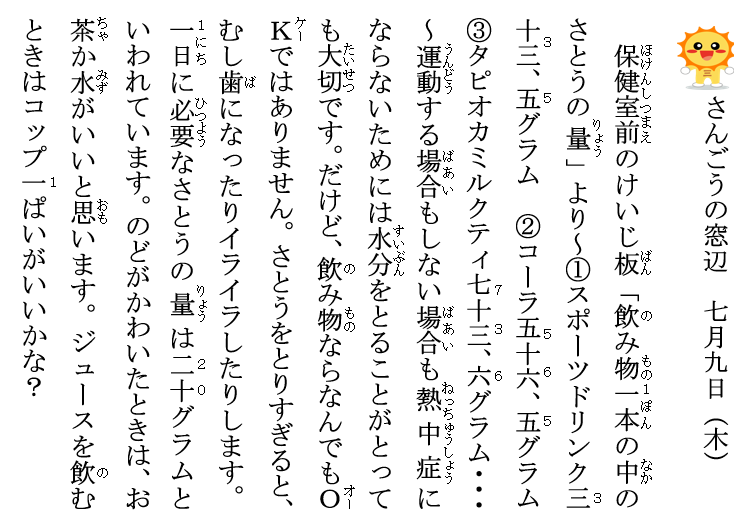 さんごうの窓辺　七月九日（木）
保健室前のけいじ板「飲み物一本の中の
さとうの量」より～①スポーツドリンク三
十三、五グラム　②コーラ五十六、五グラム
③タピオカミルクティ七十三、六グラム・・・
～運動する場合もしない場合も熱中症に
ならないためには水分をとることがとって
も大切です。だけど、飲み物ならなんでもＯ
Ｋではありません。さとうをとりすぎると、
むし歯になったりイライラしたりします。
一日に必要なさとうの量は二十グラムと
いわれています。のどがかわいたときは、お
茶か水がいいと思います。ジュースを飲む
ときはコップ一ぱいがいいかな？